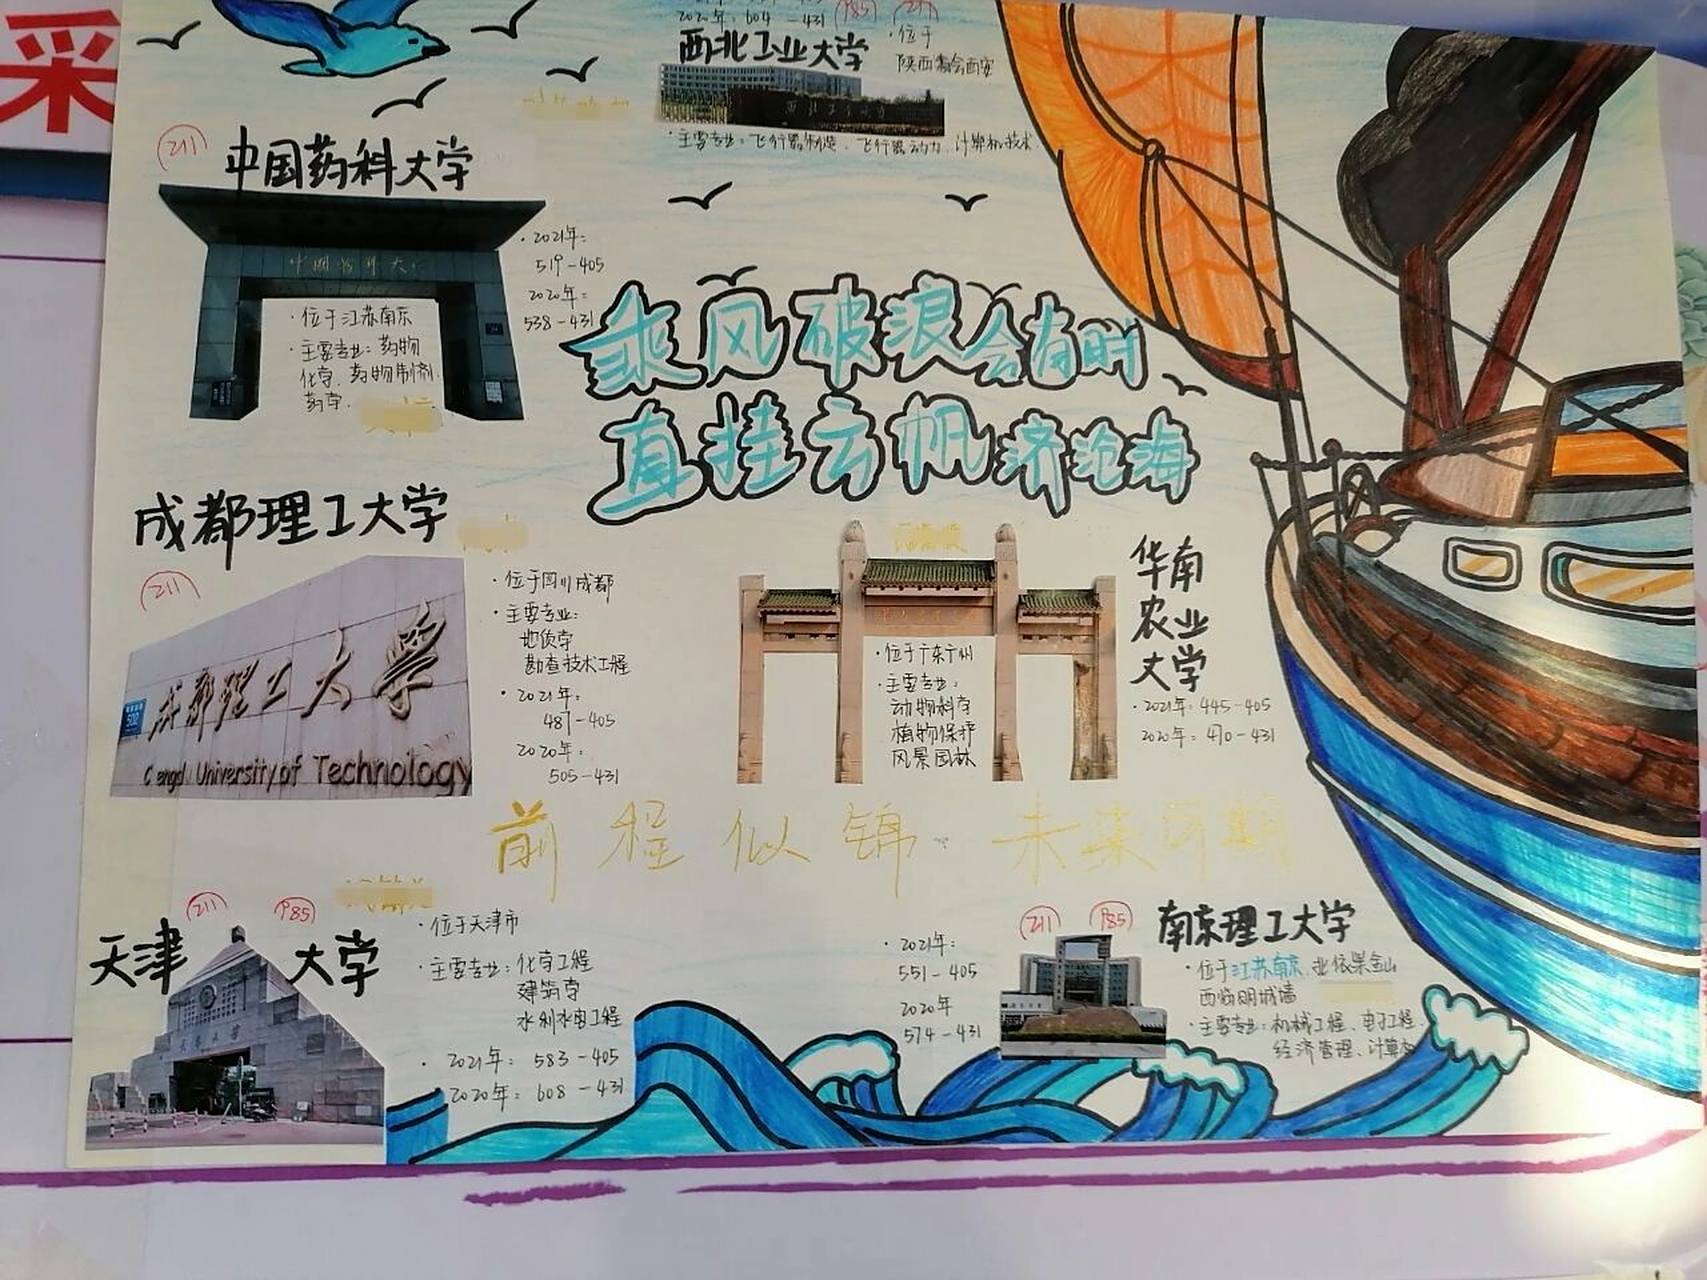 采
2020年：604-431
985
211
西北工业大学
·位于
陕西省会西安
·主要专业：飞行器制造、飞行器动力、计算机技术
211
中国药科大学
中国药科大学
·2021年：
519-405
2020年：
538-431
·位于江苏南京
·主要专业：药物
化学、药物制剂、
药学.
乘风破浪会有时
直挂云帆济沧海
成都理工大学
211
成都理工大学
University of Technology
502
·位于四川成都
·主要专业：
地质学
勘查技术工程
·2021年：
487-405
2020年：
505-431
华南
农业
大学
·位于广东广州
·主要专业：
动物科学
植物保护
风景园林
·2021年：445-405
2020年：470-431
前程似锦 未来可期
211
985
天津大学
天津大学
·位于天津市
·主要专业：化学工程
建筑学
水利水电工程
·2021年：583-405
·2020年：608-431
·2021年：
551-405
2020年
574-431
211
985
南京理工大学
·位于江苏南京、北依紫金山
西临明城墙
·主要专业：机械工程、电子工程、
经济管理、计算机